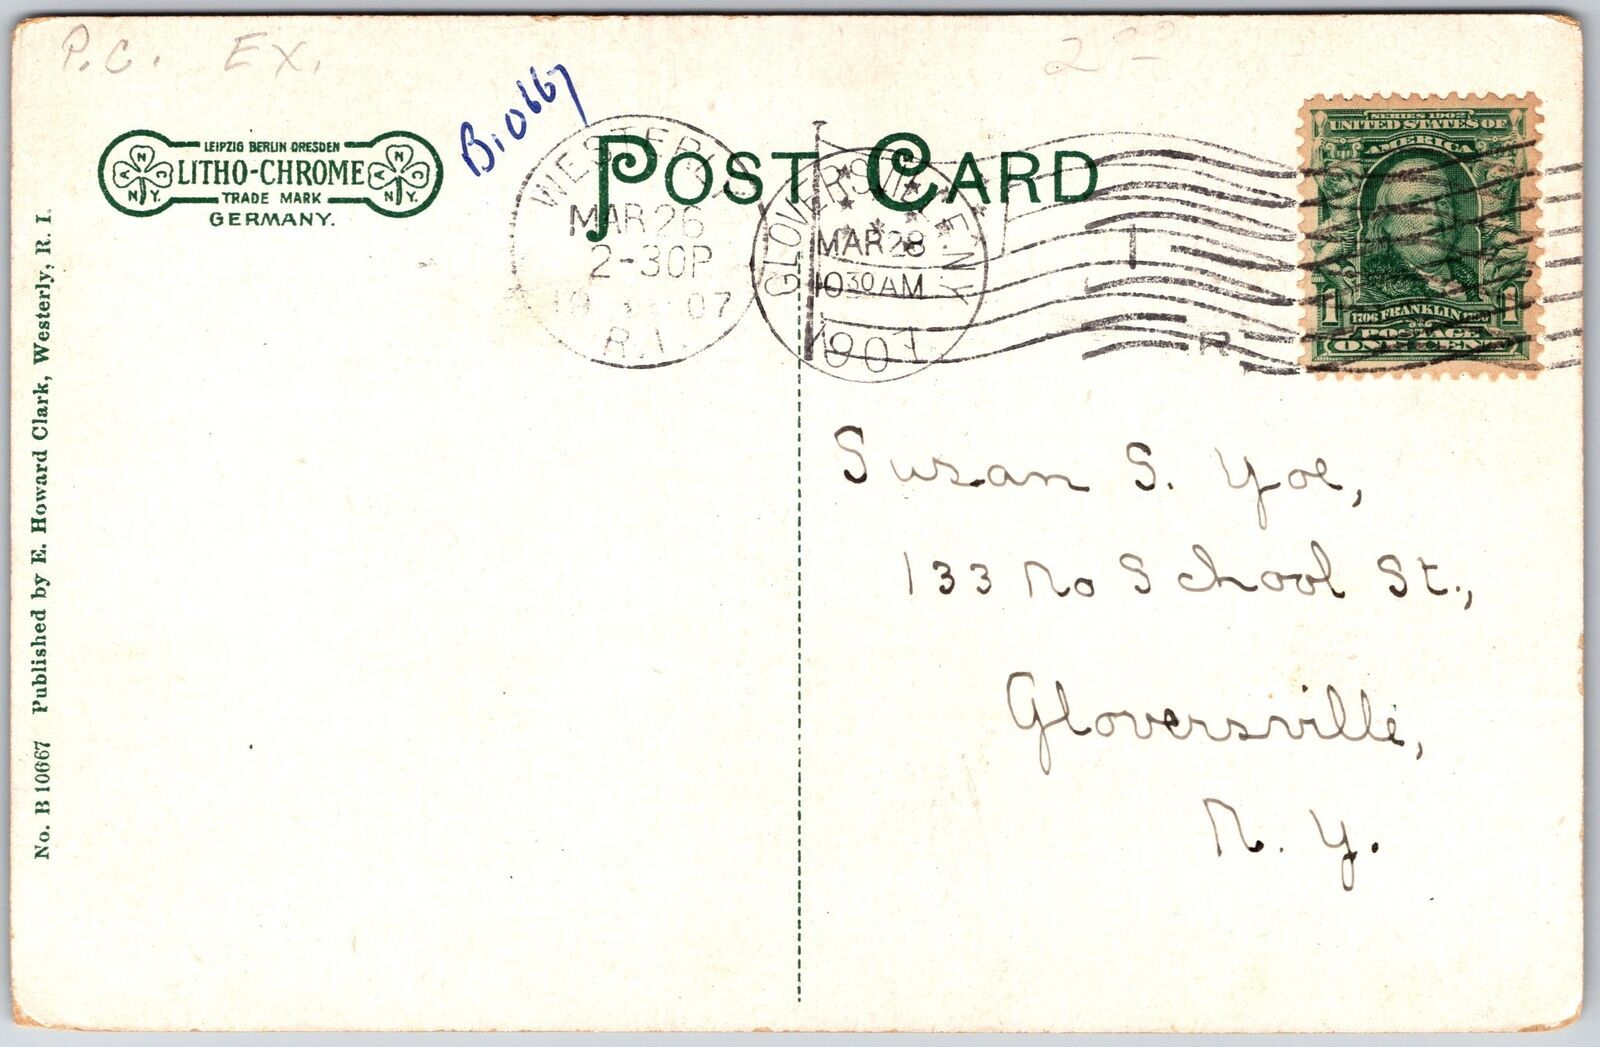 P.C. EX.
2 00
B10667
LEIPZIG BERLIN DRESDEN
LITHO-CHROME
TRADE MARK
GERMANY.
N Y. A C N
N Y. A C N
POST CARD
WESTERLY
MAR 26
2-30P
1907
R.I.
GLOVERSVILLE, N.Y.
MAR 28
1030 AM
1907
1
R.
SERIES 1902
UNITED STATES OF
AMERICA
1 1706 FRANKLIN 1790 1
POSTAGE
ONE CENT
Susan S. Yoe,
133 No School St.,
Gloversville,
N. Y.
No. B 10667 Published by E. Howard Clark, Westerly, R. I.